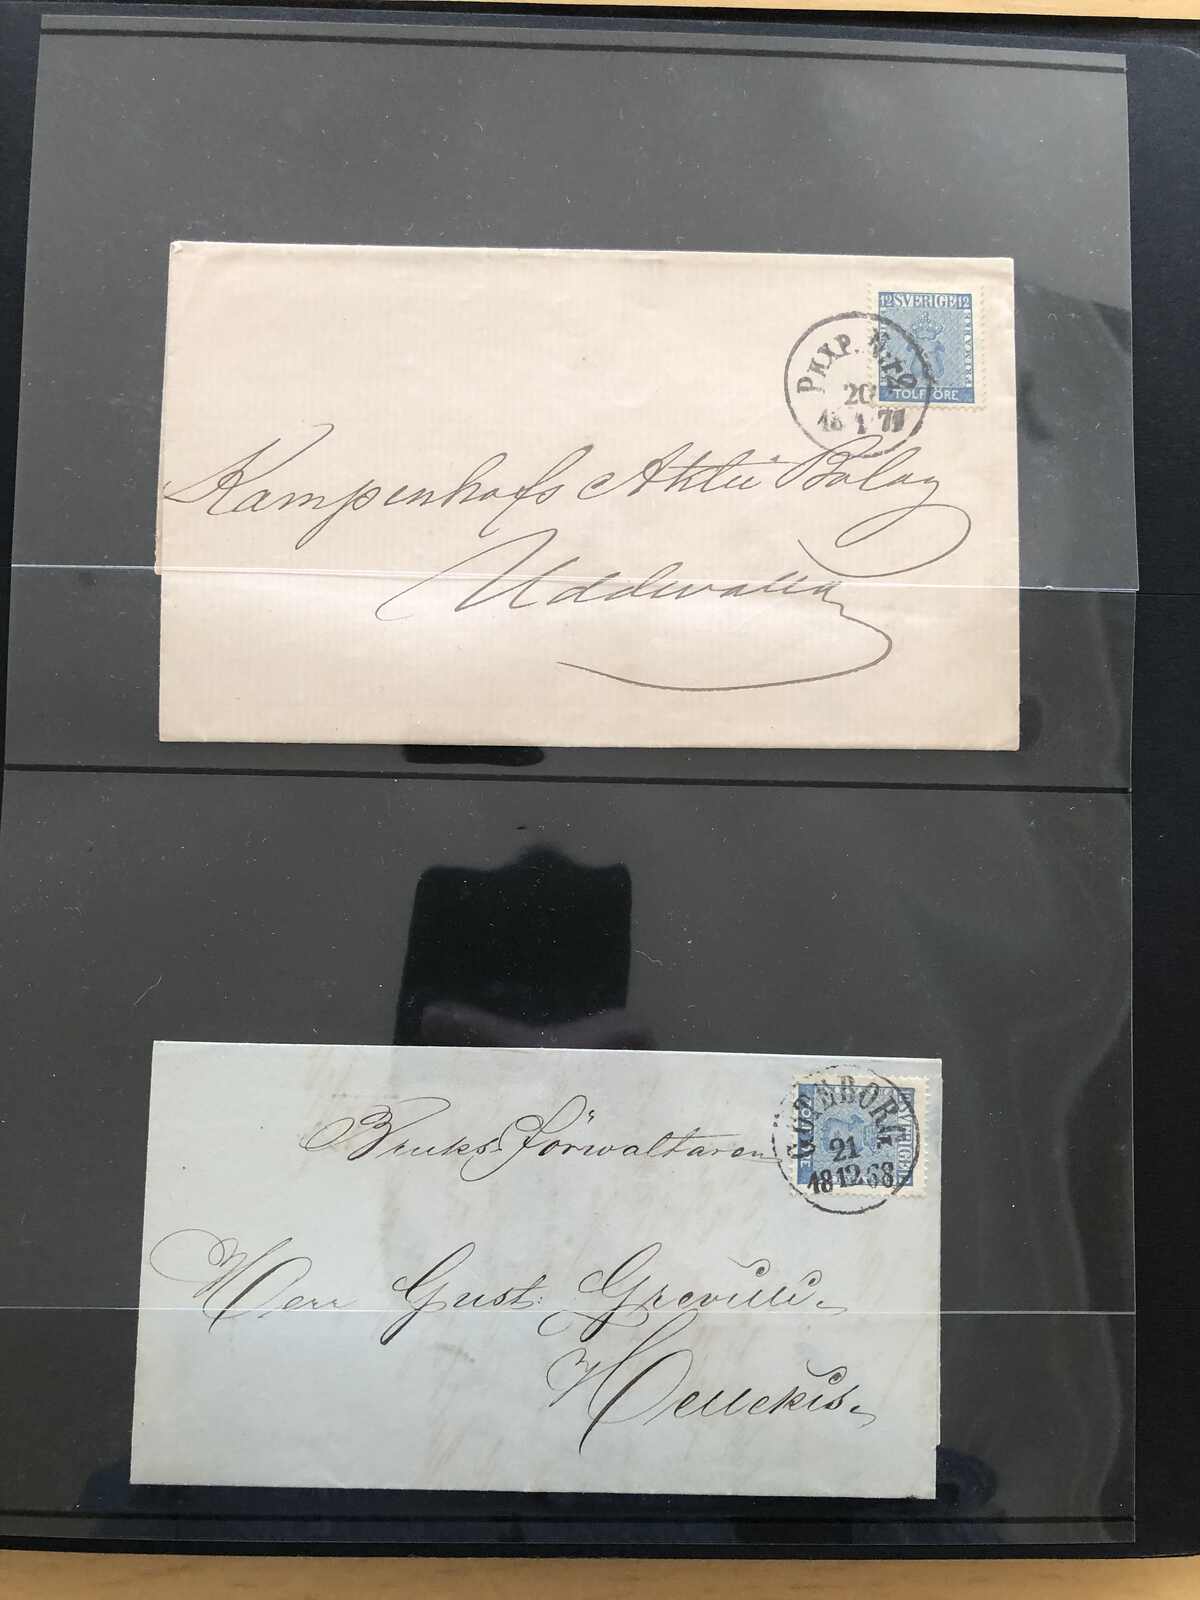 12 SVERIGE 12
TOLF ÖRE
PKXP. N:r 2
20
18 1 71
Kampenhofs Aktie Bolag
Uddevalla
GÖTEBORG
21
18 12 68
SVERIGE
Bruks-förwaltaren
Herr Gust: Grevilli
Hellekis